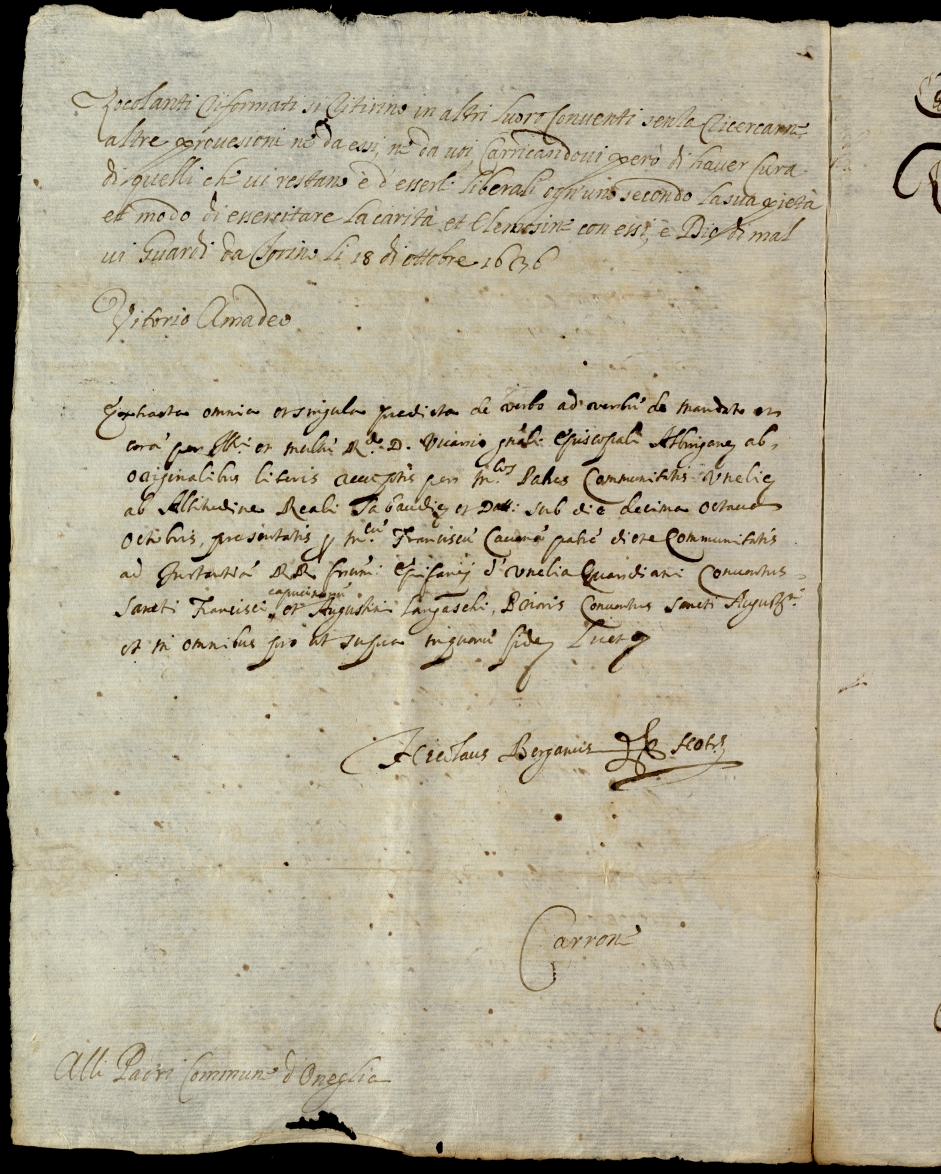 Zocolanti Riformati si ritirino in altri luoro Conventi senza ricercarne
altre provesioni ne da essi, ne da voi, Carricandovi però di haver Cura
di quelli che vi restano è d'esserli liberali ogn'uno secondo la sua pietà
et modo di essercitare la carità et elemosine con essi, e Dio di mal
vi Guardi da Torino li 18 di ottobre 1636
Vitorio Amadeo
Extracta omnia et singula predicta de verbo ad verbũ de mandato et
corã per Ill. et multũ Rdo D. Vicario gñali Episcopali Albingane ab
originalibus literis acceptis per M.cos Patres Communitatis Unelię
ab Altitudine Reali Sabaudię et Datt: sub die decima octava
Octobris, presentatis p M.cũ Franciscũ patrẽ dicte Communitatis
ad Instantiã RR frum: Epifanij d' Unelia Guardiani Conventus
Sancti Francisci capucinorũ et Augustini Langaschi, Prioris Conventus Sancti Augustni
et in omnibus pro ut supra in quorũ fide
Nicolaus Berganus
Carron
Alli Padri Commune d'Oneglia